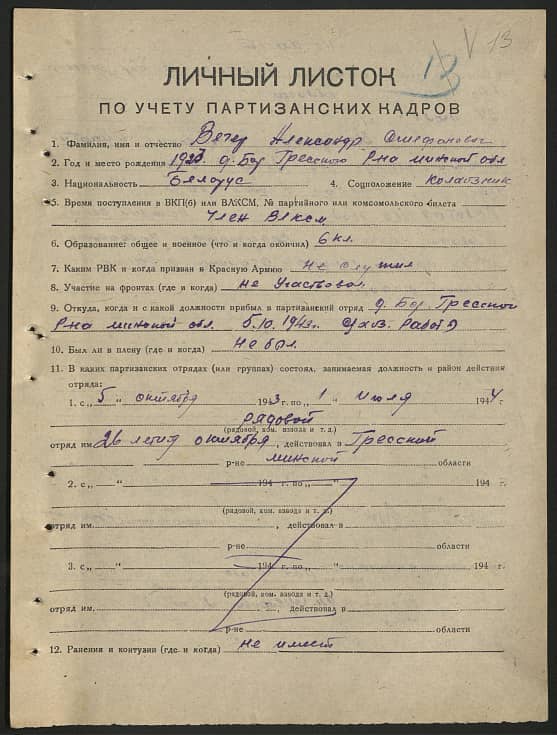 13
13
ЛИЧНЫЙ ЛИСТОК
ПО УЧЕТУ ПАРТИЗАНСКИХ КАДРОВ
1. Фамилия, имя и отчество Вечер Александр Стефанович
2. Год и место рождения 1923. д. Бор Гресского р-на минской обл
3. Национальность Белорус 4. Соцположение колхозник
5. Время поступления в ВКП(б) или ВЛКСМ, № партийного или комсомольского билета
Член Влксм
6. Образование: общее и военное (что и когда окончил) 6 кл.
7. Каким РВК и когда призван в Красную Армию не служил
8. Участие на фронтах (где и когда) не участвовал
9. Откуда, когда и с какой должности прибыл в партизанский отряд д. Бор, Гресской
р-на минской обл. 5.10.1943г. с/хоз. работ
10. Был ли в плену (где и когда) не был
11. В каких партизанских отрядах (или группах) состоял, занимаемая должность и район действия
отряда:
1. с „5“ октября 1943 г. по „1“ июля 1944
рядовой
(рядовой, ком. взвода и т. д.)
отряд им. 26 летия октября, действовал в Гресской
р-не минской области
2. с „ “ 194 г. по „ “ 194 г.
(рядовой, ком. взвода и т. д.)
отряд им. , действовал в
р-не области
3. с „ “ 194 г. по „ “ 194 г.
(рядовой, ком. взвода и т. д.)
отряд им. , действовал в
р-не области
12. Ранения и контузии (где и когда) не имеет